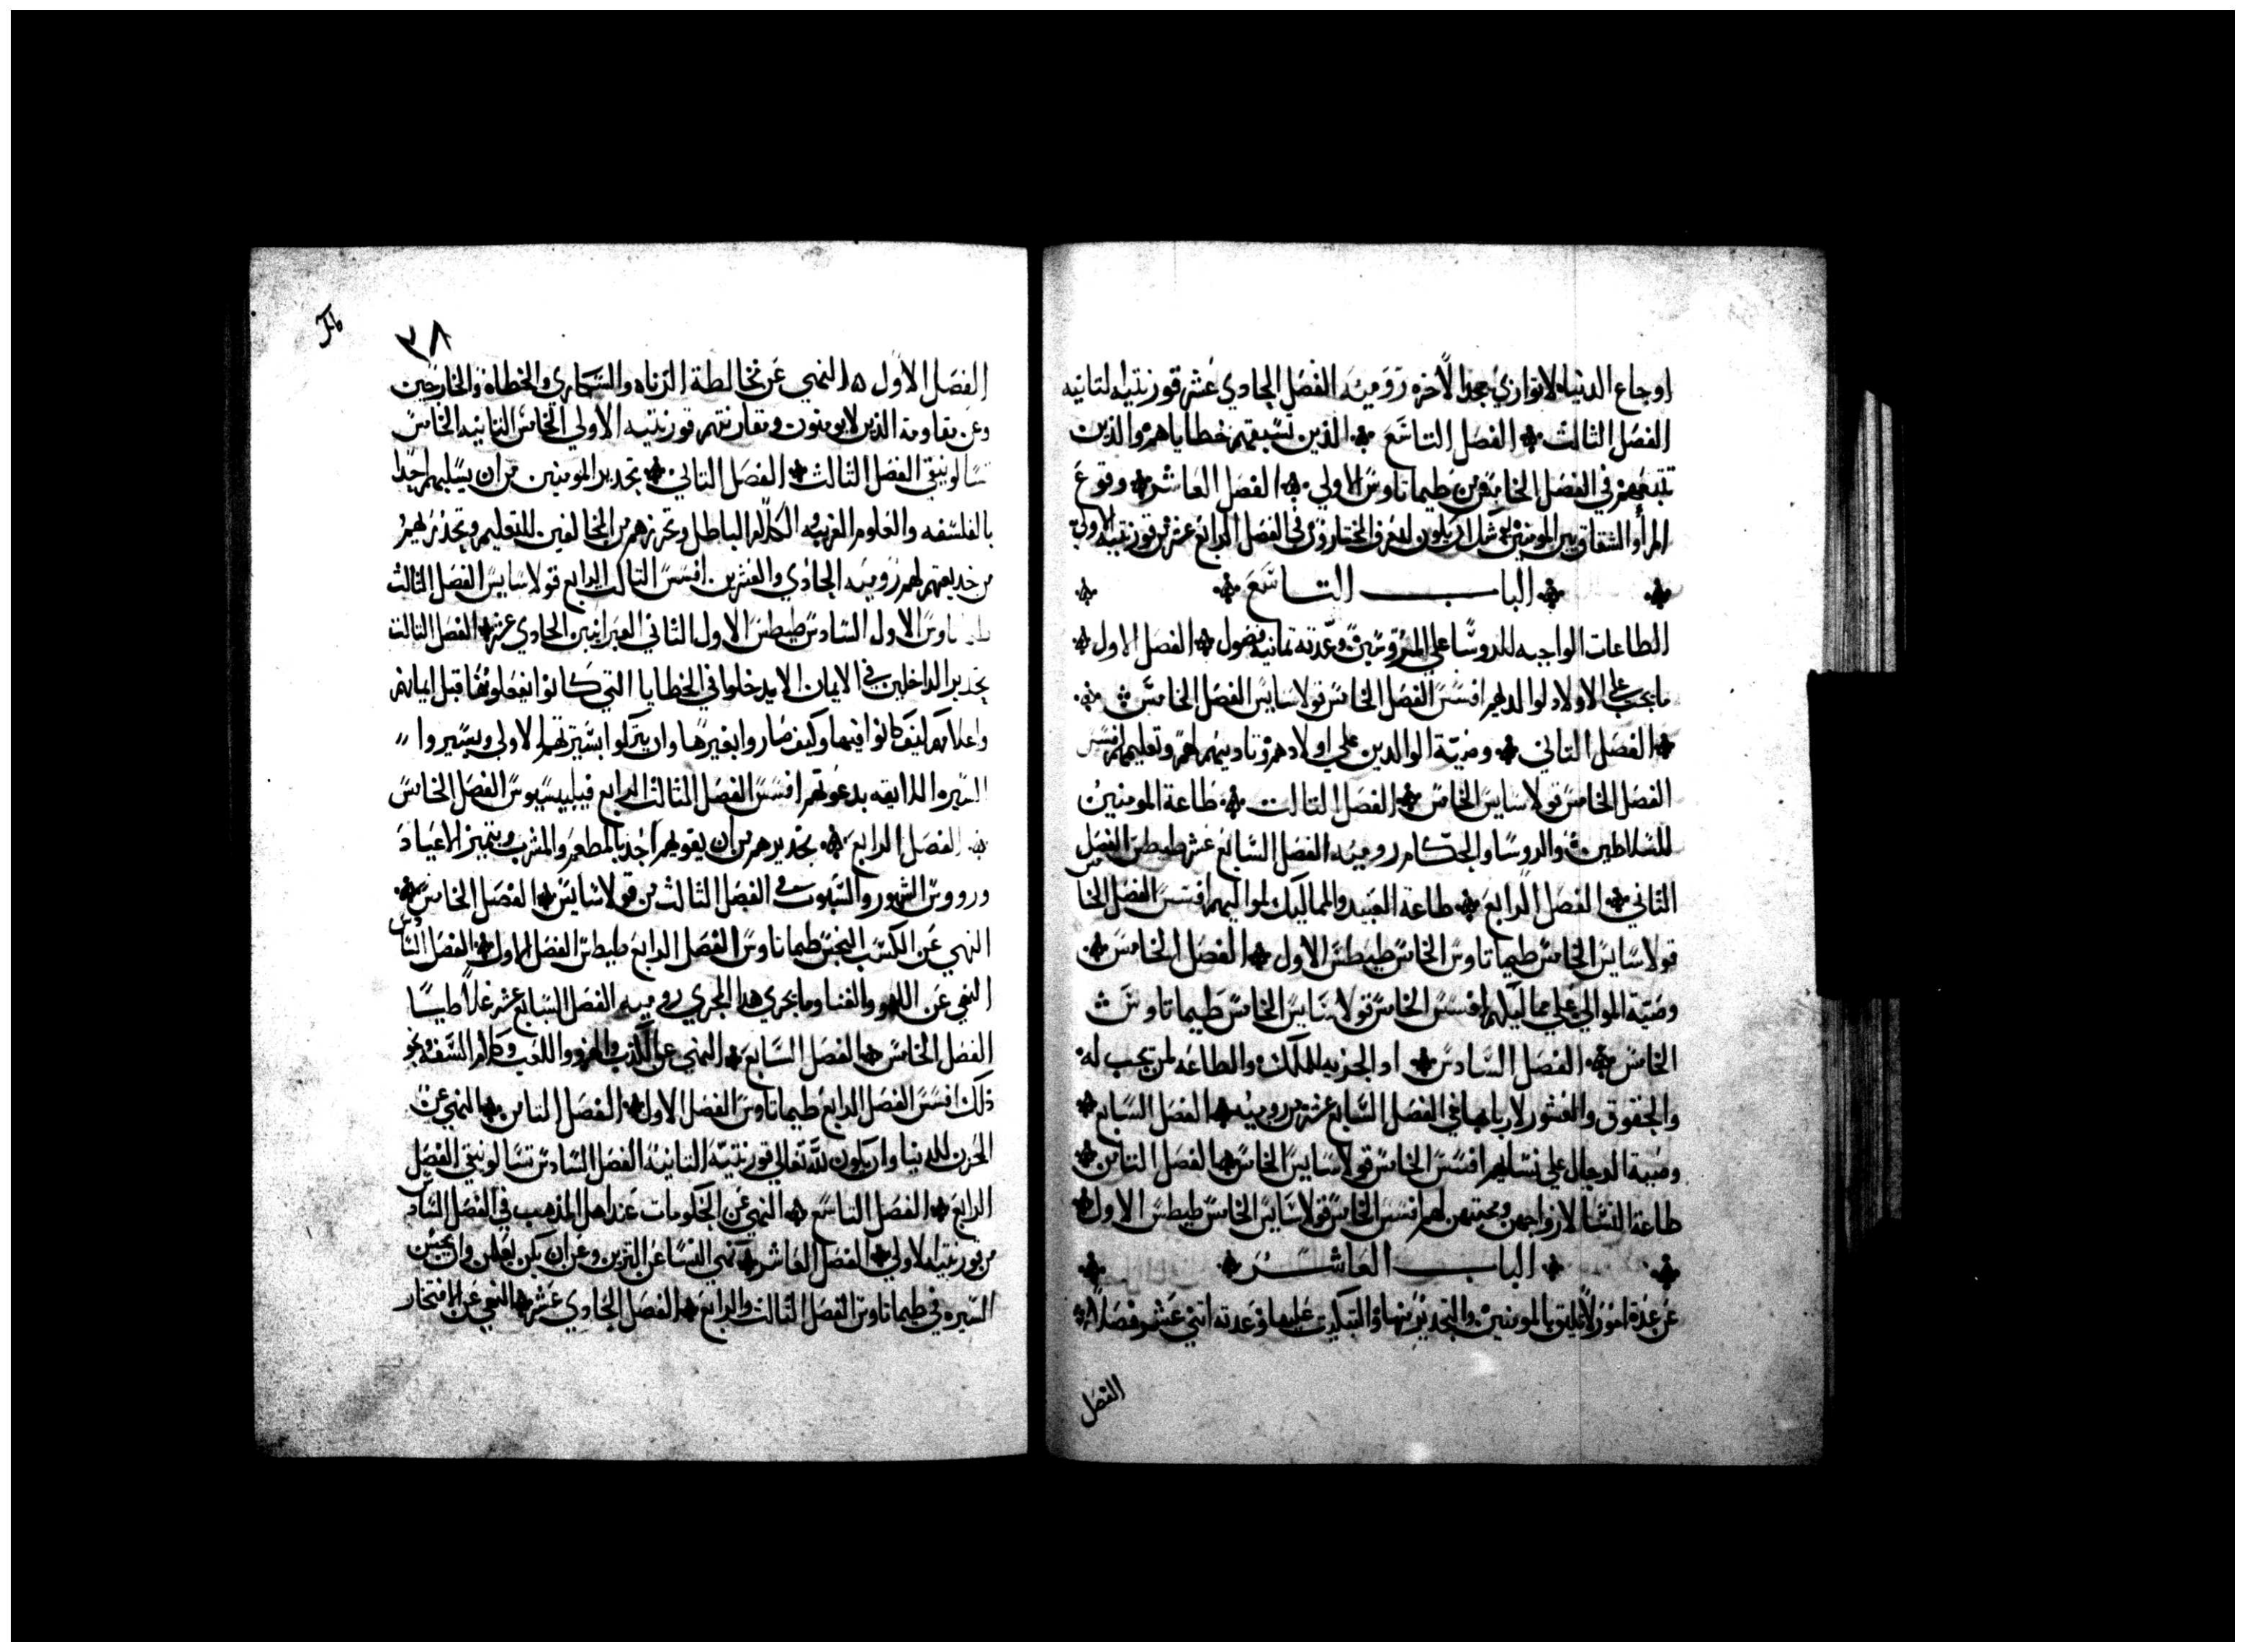 اوجاع الدنيا لا توازي مجد الاخره رومية الفصل الحادي عشر قورنتيه التانيه
الفصل الثالث الفصل التاسع الذين تسبقهم خطاياهم والذين
تتبعهم في الفصل الخامس من طيماتاوس الاولي الفصل العاشر وقوع
المرأ والشقاق بين المومنين ليكون المختارون في الفصل الرابع عشر من قورنتيه الاولي
الباب التاسع
الطاعات الواجبه للروسا علي المروسين وعدته تمانية فصول الفصل الاول
ما يجب علي الاولاد لوالديهم افسس الفصل الخامس قولاسايس الفصل الخامس
الفصل التاني وصية الوالدين علي اولادهم وتاديبهم لهم وتعليمهم افسس
الفصل الخامس قولاسايس الخامس الفصل التالت طاعة المومنين
للسلاطين والروسا والحكام روميه الفصل السابع عشر طيطس الفصل
التاني الفصل الرابع طاعة العبيد والمماليك لمواليهم افسس الفصل الخامس
قولاسايس الخامس طيماتاوس الخامس طيطس الاول الفصل الخامس
وصية الموالي علي مماليكهم افسس الخامس قولاسايس الخامس طيماتاوس
الخامس الفصل السادس ادا الجزيه للملك والطاعه لمن تجب له
والحقوق والعشور لاربابها في الفصل السابع عشر من روميه الفصل السابع
وصية الرجال علي نسايهم افسس الخامس قولاسايس الخامس الفصل التامن
طاعة النسا لازواجهن ومحبتهن لهم افسس الخامس قولاسايس الخامس طيطس الاول
الباب العاشر
عن عدة امور لا تليق بالمومنين والتحدير منها والتبكيت عليها وعدته اتني عشر فصلا
الفصل
٣٨
الفصل الاول النهي عن مخالطة الزناه والسكاري والخطاه والخارجين
وعن مقاومة الذين لا يومنون ومقارنتهم قورنتيه الاولي الخامس التانيه الخامس
تسالونيقي الفصل الثالث الفصل التاني تحدير المومنين من ان يسلبهم احدا
بالفلسفه والعلوم الغريبه والكلام الباطل وتحرزهم من المخالفين للتعليم وتحذيرهم
من خديعتهم لهم روميه الحادي والعشرين افسس التالت الرابع قولاسايس الفصل الثالث
طيماتاوس الاول السادس طيطس الاول التاني العبرانيين الحادي عشر الفصل التالت
تحدير الداخلين في الايمان الا يدخلوا في الخطايا التي كانوا يفعلونها قبل ايمانهم
واعلامهم كيف كانوا فيها وكيف صاروا بغيرها وان يتركوا سيرتهم الاولي ويسيروا
السيره الاليقه بدعوتهم افسس الفصل التالت الرابع فيليبسيوس الفصل الخامس
الفصل الرابع تحديرهم من ان يغويهم احد بالمطعم والمشرب وبتمييز الاعياد
وروس الشهور والسبوت في الفصل الثالث من قولاسايس الفصل الخامس
النهي عن الكسب النجس طيماتاوس الفصل الرابع طيطس الفصل الاول الفصل السادس
النهي عن اللهو والغنا وما يجري هدا المجري روميه الفصل السابع عشر غلاطيسا
الفصل الخامس الفصل السابع النهي عن الكذب والهزو واللعب وكلام السفه ونحو
ذلك افسس الفصل الرابع طيماتاوس الفصل الاول الفصل التامن النهي عن
الحزن للدنيا وان يكون لله تعالي قورنتيه التانيه الفصل السادس تسالونيقي الفصل
الرابع الفصل التاسع النهي عن الحكومات عند اهل المذهب في الفصل السادس
من قورنتيه الاولي الفصل العاشر نهي النسا عن التزين وعن ان يكن يعلمن وان يحسن
السيره في طيماتاوس الفصل التالت والرابع الفصل الحادي عشر النهي عن الافتخار